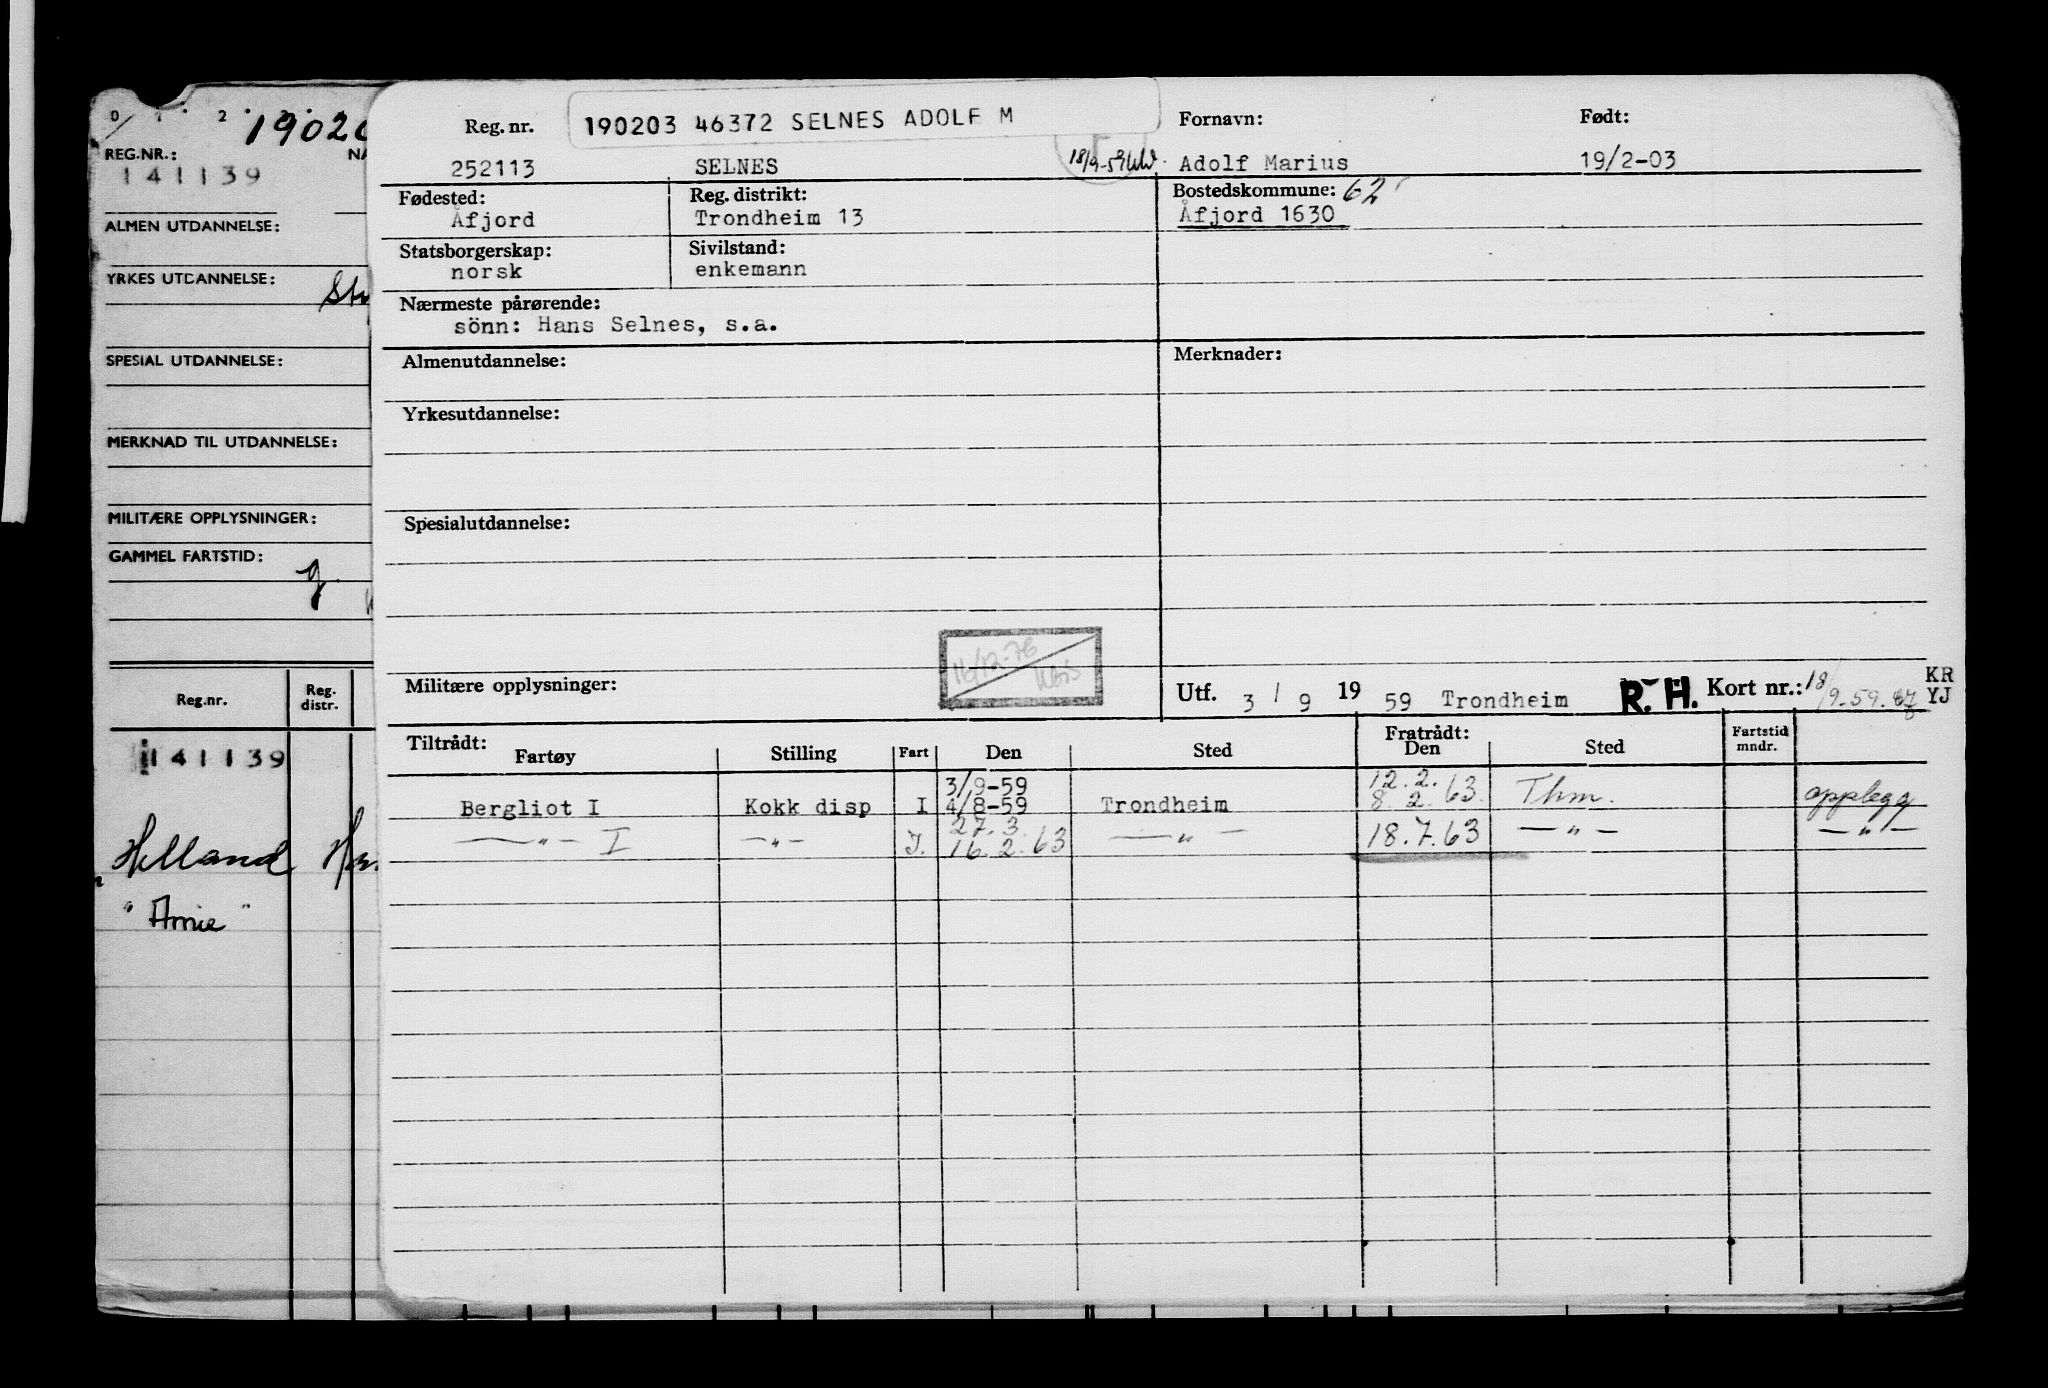 0 1 2
REG.NR.:
141139
ALMEN UTDANNELSE:
YRKES UTDANNELSE:
SPESIAL UTDANNELSE:
MERKNAD TIL UTDANNELSE:
MILITÆRE OPPLYSNINGER:
GAMMEL FARTSTID:
Reg.nr. Reg. distr.
141139
Helland
" Arnie "
Reg. nr. 190203 46372 SELNES ADOLF M Fornavn: Født:
252113 SELNES 18/9-59 Adolf Marius 19/2-03
Fødested: Reg. distrikt: Bostedskommune: 62
Åfjord Trondheim 13 Åfjord 1630
Statsborgerskap: Sivilstand:
norsk enkemann
Nærmeste pårørende:
sönn: Hans Selnes, s.a.
Almenutdannelse: Merknader:
Yrkesutdannelse:
Spesialutdannelse:
16/12-76
Militære opplysninger: Utf. 3 / 9 19 59 Trondheim R.H. Kort nr.: 18/9.59. KR YJ
Tiltrådt: Fratrådt:
Fartøy Stilling Fart Den Sted Den Sted Fartstid mndr.
3/9-59 12.2.63
Bergliot I Kokk disp I 4/8-59 Trondheim 8.2.63. Thm. opplegg
27.3.
—"— I —"— I. 16.2.63 —"— 18.7.63 —"— —"—